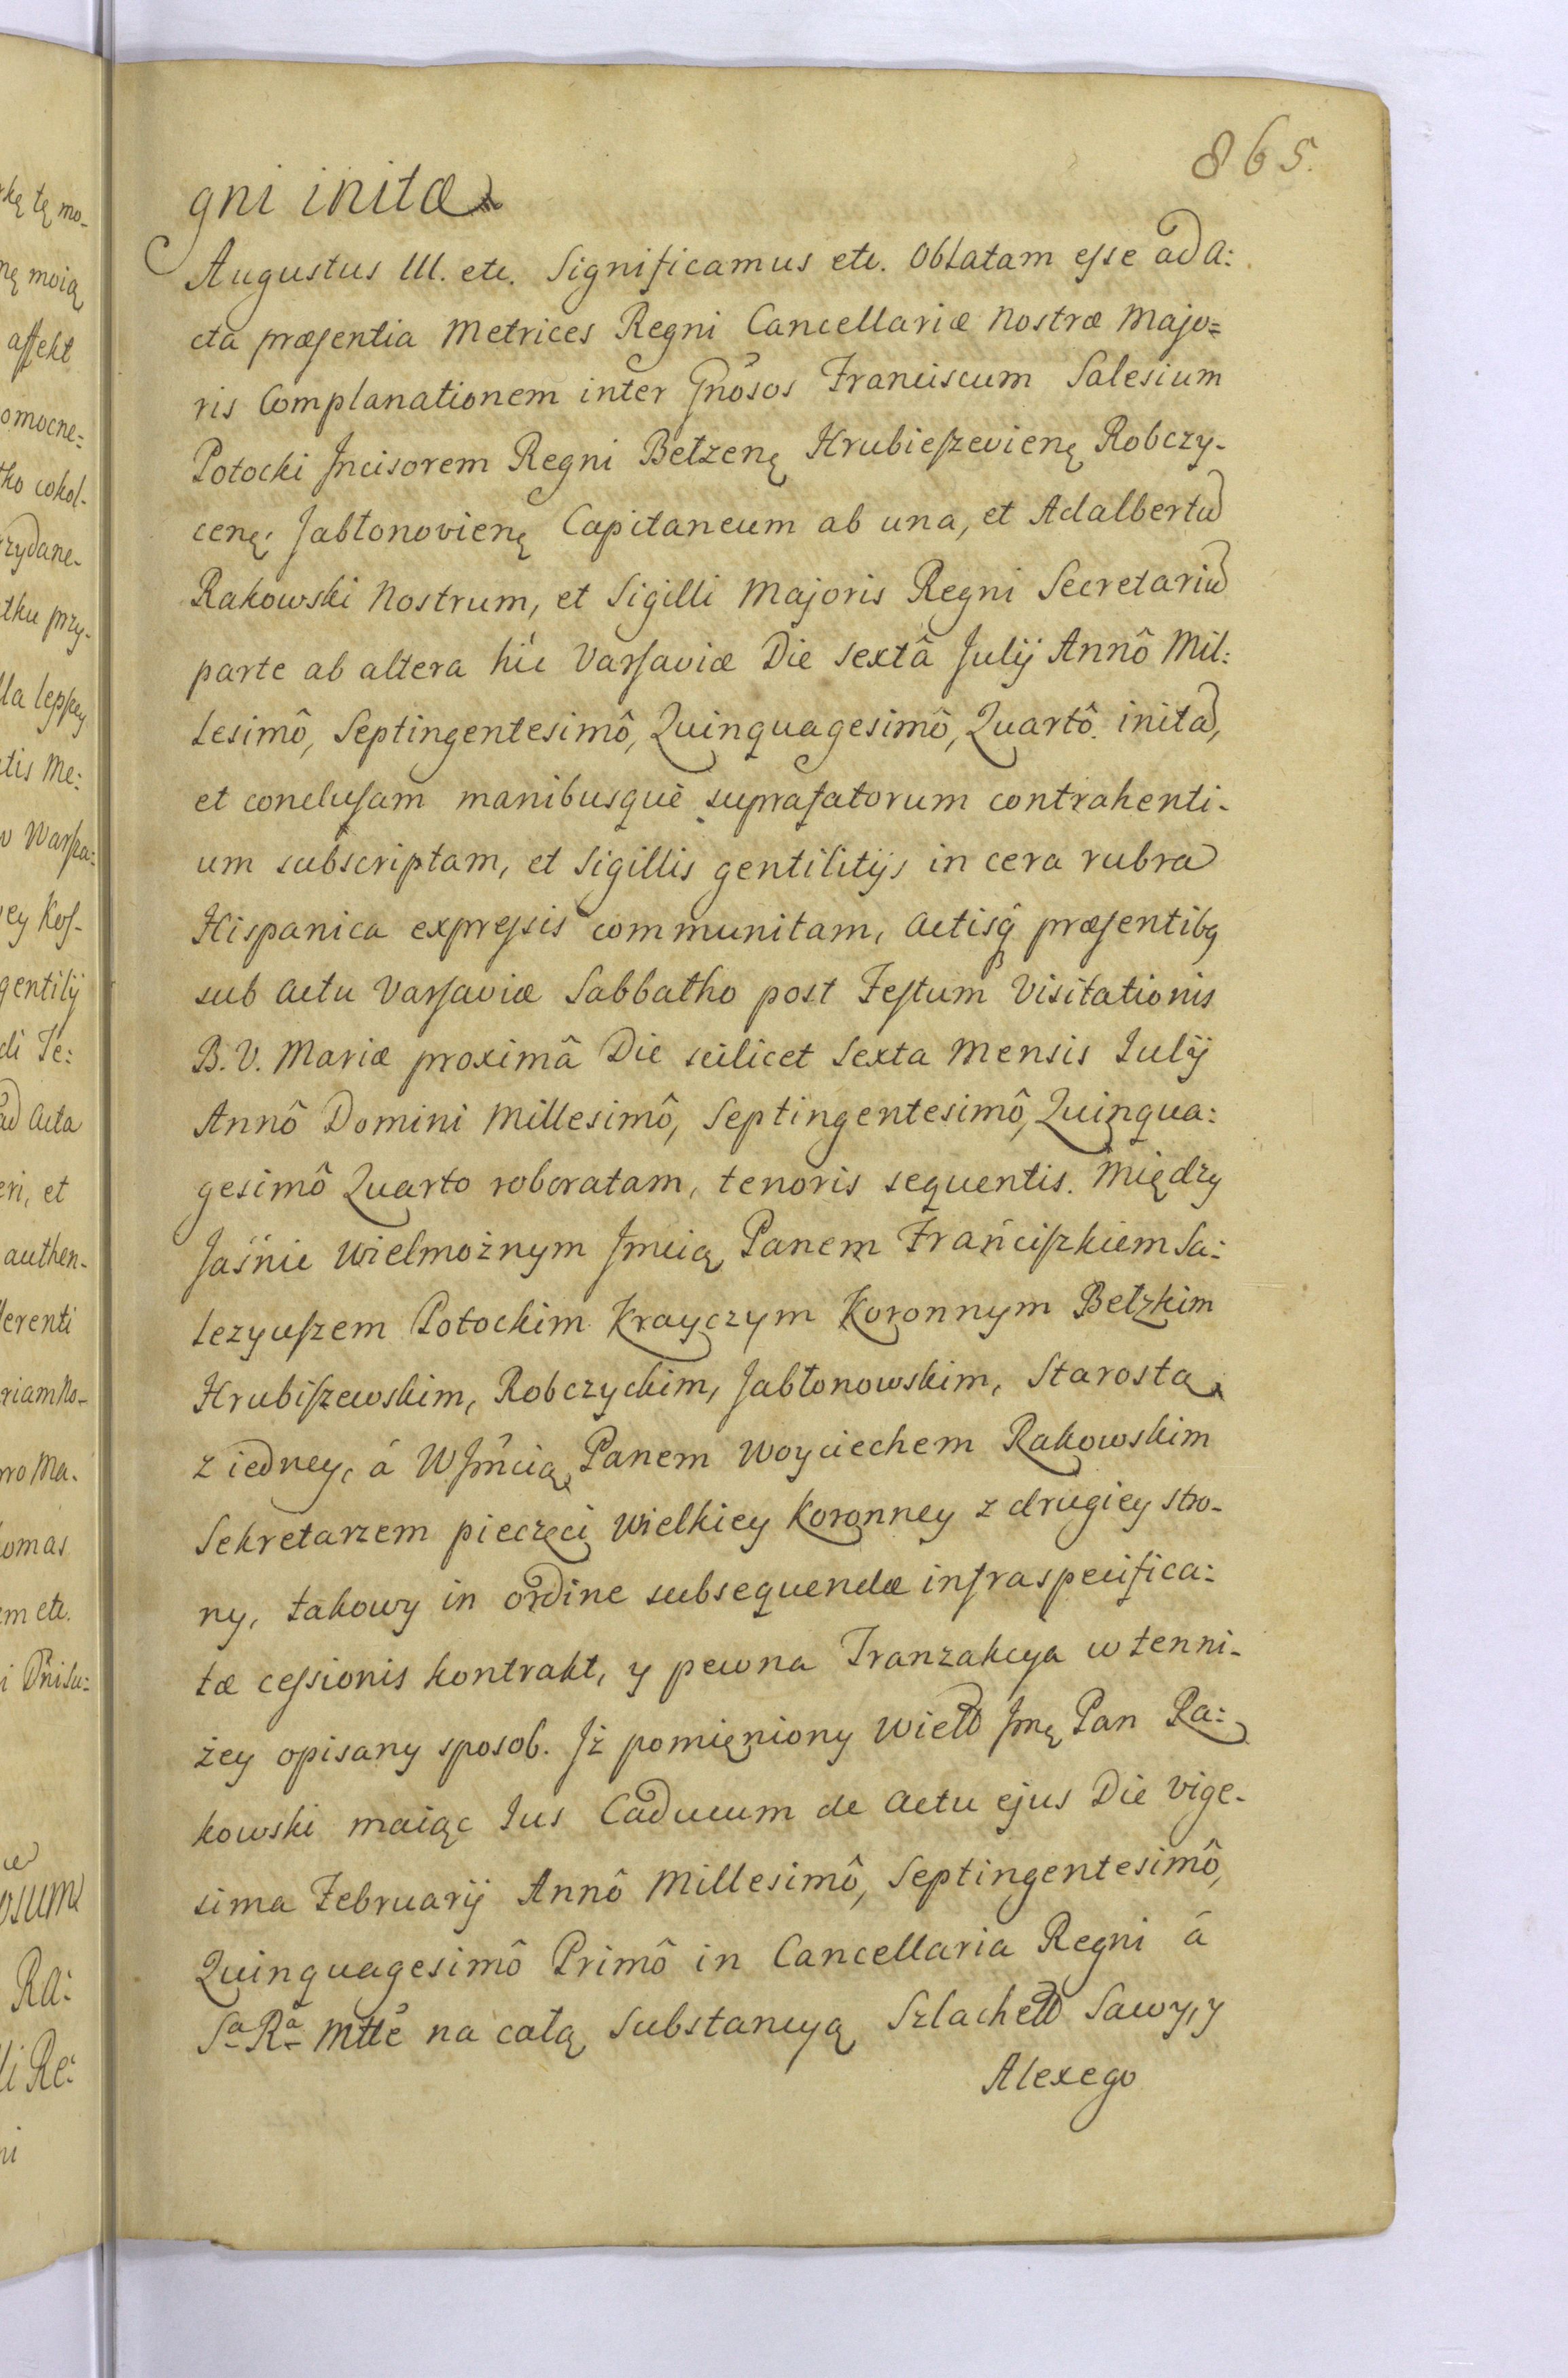 865.
gni initæ
Augustus III. etc. Significamus etc. Oblatam esse ad A:
cta præsentia Metrices Regni Cancellariæ Nostræ Majo=
ris Complanationem inter Gnôsos Franciscum Salesium
Potocki Incisorem Regni Bełzenę Hrubieszevienę Robczy-
cenę, Jabłonovienę Capitaneum ab una, et Adalbertū
Rakowski Nostrum, et Sigilli Majoris Regni Secretariū
parte ab altera hîc Varsaviæ Die sextâ Julij Annô Mil:
lesimô, Septingentesimô, Quinquagesimô, Quartô. initã,
et conclusam manibusquè suprafatorum contrahenti-
um subscriptam, et Sigillis gentilitijs in cera rubra
Hispanica expressis communitam, Actisq́ præsentibq
sub Actu Varsaviæ Sabbatho post Festum Visitationis
B. V. Mariæ proximâ Die scilicet Sexta Mensis Julij
Annô Domini Millesimô, Septingentesimô, Quinqua:
gesimô Quarto roboratam, tenoris sequentis. Między
Jaśnie Wielmożnym Jmcią Panem Frańciszkiem Sa:
lezyuszem Potockim Krayczym Koronnym Bełzkim
Hrubiszewskim, Robczyckim, Jabłonowskim, Starostą
z iedney, á WJm̃cią Panem Woyciechem Rakowskim
Sekretarzem pieczęci Wielkiey Koronney z drugiey stro-
ny, takowy in ordine subsequendæ infraspecifica:
tæ cessionis kontrakt, y pewna Tranzakcya w tenni-
żey opisany sposob. Iż pomięniony Wielb Jmę Pan Ra:
kowski maiąc Jus Caducum de Actu ejus Die vige-
sima Februarij Annô Millesimô, Septingentesimô,
Quinquagesimô Primô in Cancellaria Regni á
Sª Rª Mtte na całą Substancyą Szlachett Sawy, y
Alexego